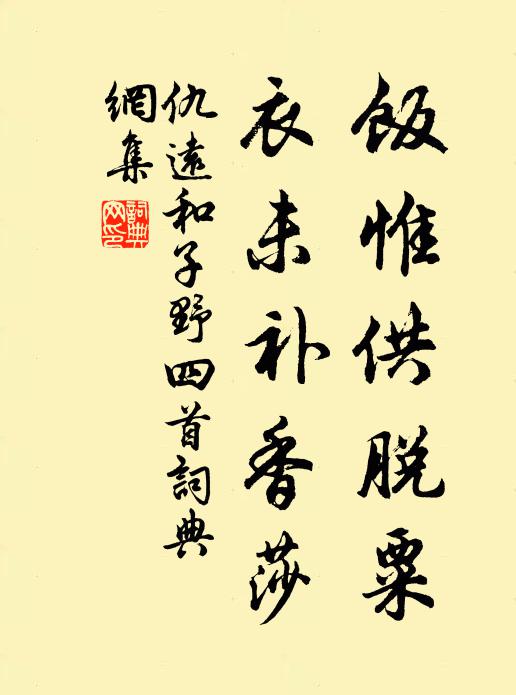 飯惟供脫粟
衣未补香莎
仇遠和子野四首詞典
網集
詞典
网印